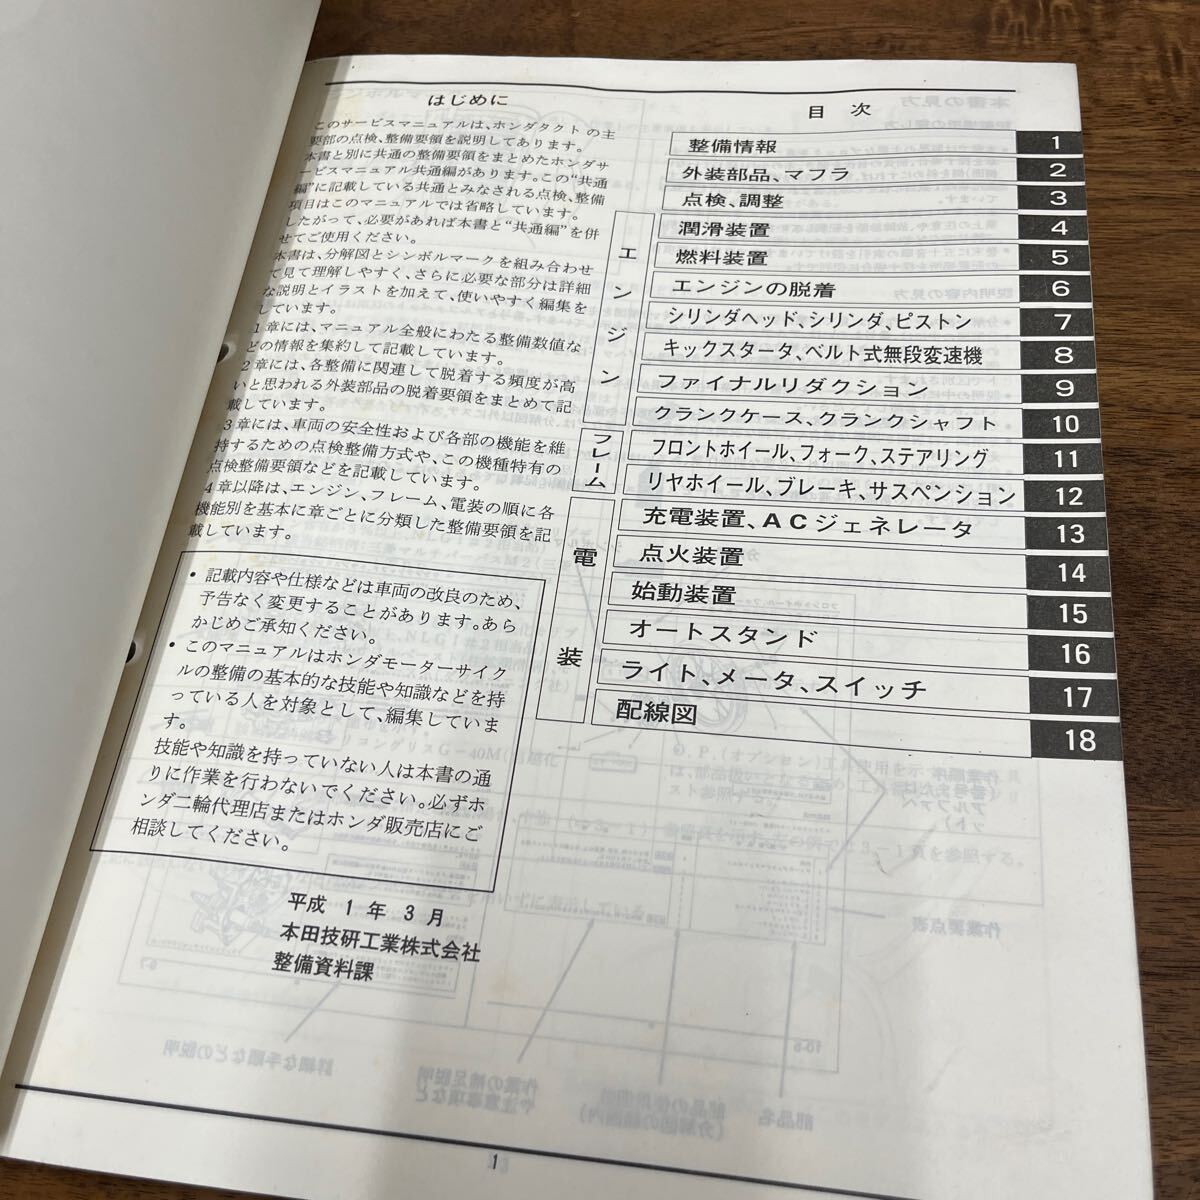 はじめに
このサービスマニュアルは、ホンダタクト の主
要部の点検、整備要領を説明してあります。
本書と別に共通の整備要領をまとめたホンダサ
ービスマニュアル共通編があります。この“共通
編”に記載している共通とみなされる点検、整備
項目はこのマニュアルでは省略しています。
したがって、必要があれば本書と“共通編”を併
せてご使用ください。
本書は、分解図とシンボルマークを組み合わせ
て見て理解しやすく、さらに必要な部分は詳細
な説明とイラストを加えて、使いやすく編集を
しています。
1章には、マニュアル全般にわたる整備数値な
どの情報を集約して記載しています。
2章には、各整備に関連して脱着する頻度が高
いと思われる外装部品の脱着要領をまとめて記
載しています。
3章には、車両の安全性および各部の機能を維
持するための点検整備方式や、この機種特有の
点検整備要領などを記載しています。
4章以降は、エンジン、フレーム、電装の順に各
機能別を基本に章ごとに分類した整備要領を記
載しています。
・記載内容や仕様などは車両の改良のため、
予告なく変更することがあります。あら
かじめご承知ください。
・このマニュアルはホンダモーターサイク
ルの整備の基本的な技能や知識などを持
っている人を対象として、編集していま
す。
技能や知識を持っていない人は本書の通
りに作業を行わないでください。必ずホ
ンダ二輪代理店またはホンダ販売店にご
相談してください。
平成 1 年 3 月
本田技研工業株式会社
整備資料課
目 次
整備情報 1
外装部品、マフラ 2
点検、調整 3
エンジン
潤滑装置 4
燃料装置 5
エンジンの脱着 6
シリンダヘッド、シリンダ、ピストン 7
キックスタータ、ベルト式無段変速機 8
ファイナルリダクション 9
クランクケース、クランクシャフト 10
フレーム
フロントホイール、フォーク、ステアリング 11
リヤホイール、ブレーキ、サスペンション 12
電装
充電装置、ACジェネレータ 13
点火装置 14
始動装置 15
オートスタンド 16
ライト、メータ、スイッチ 17
配線図 18
1